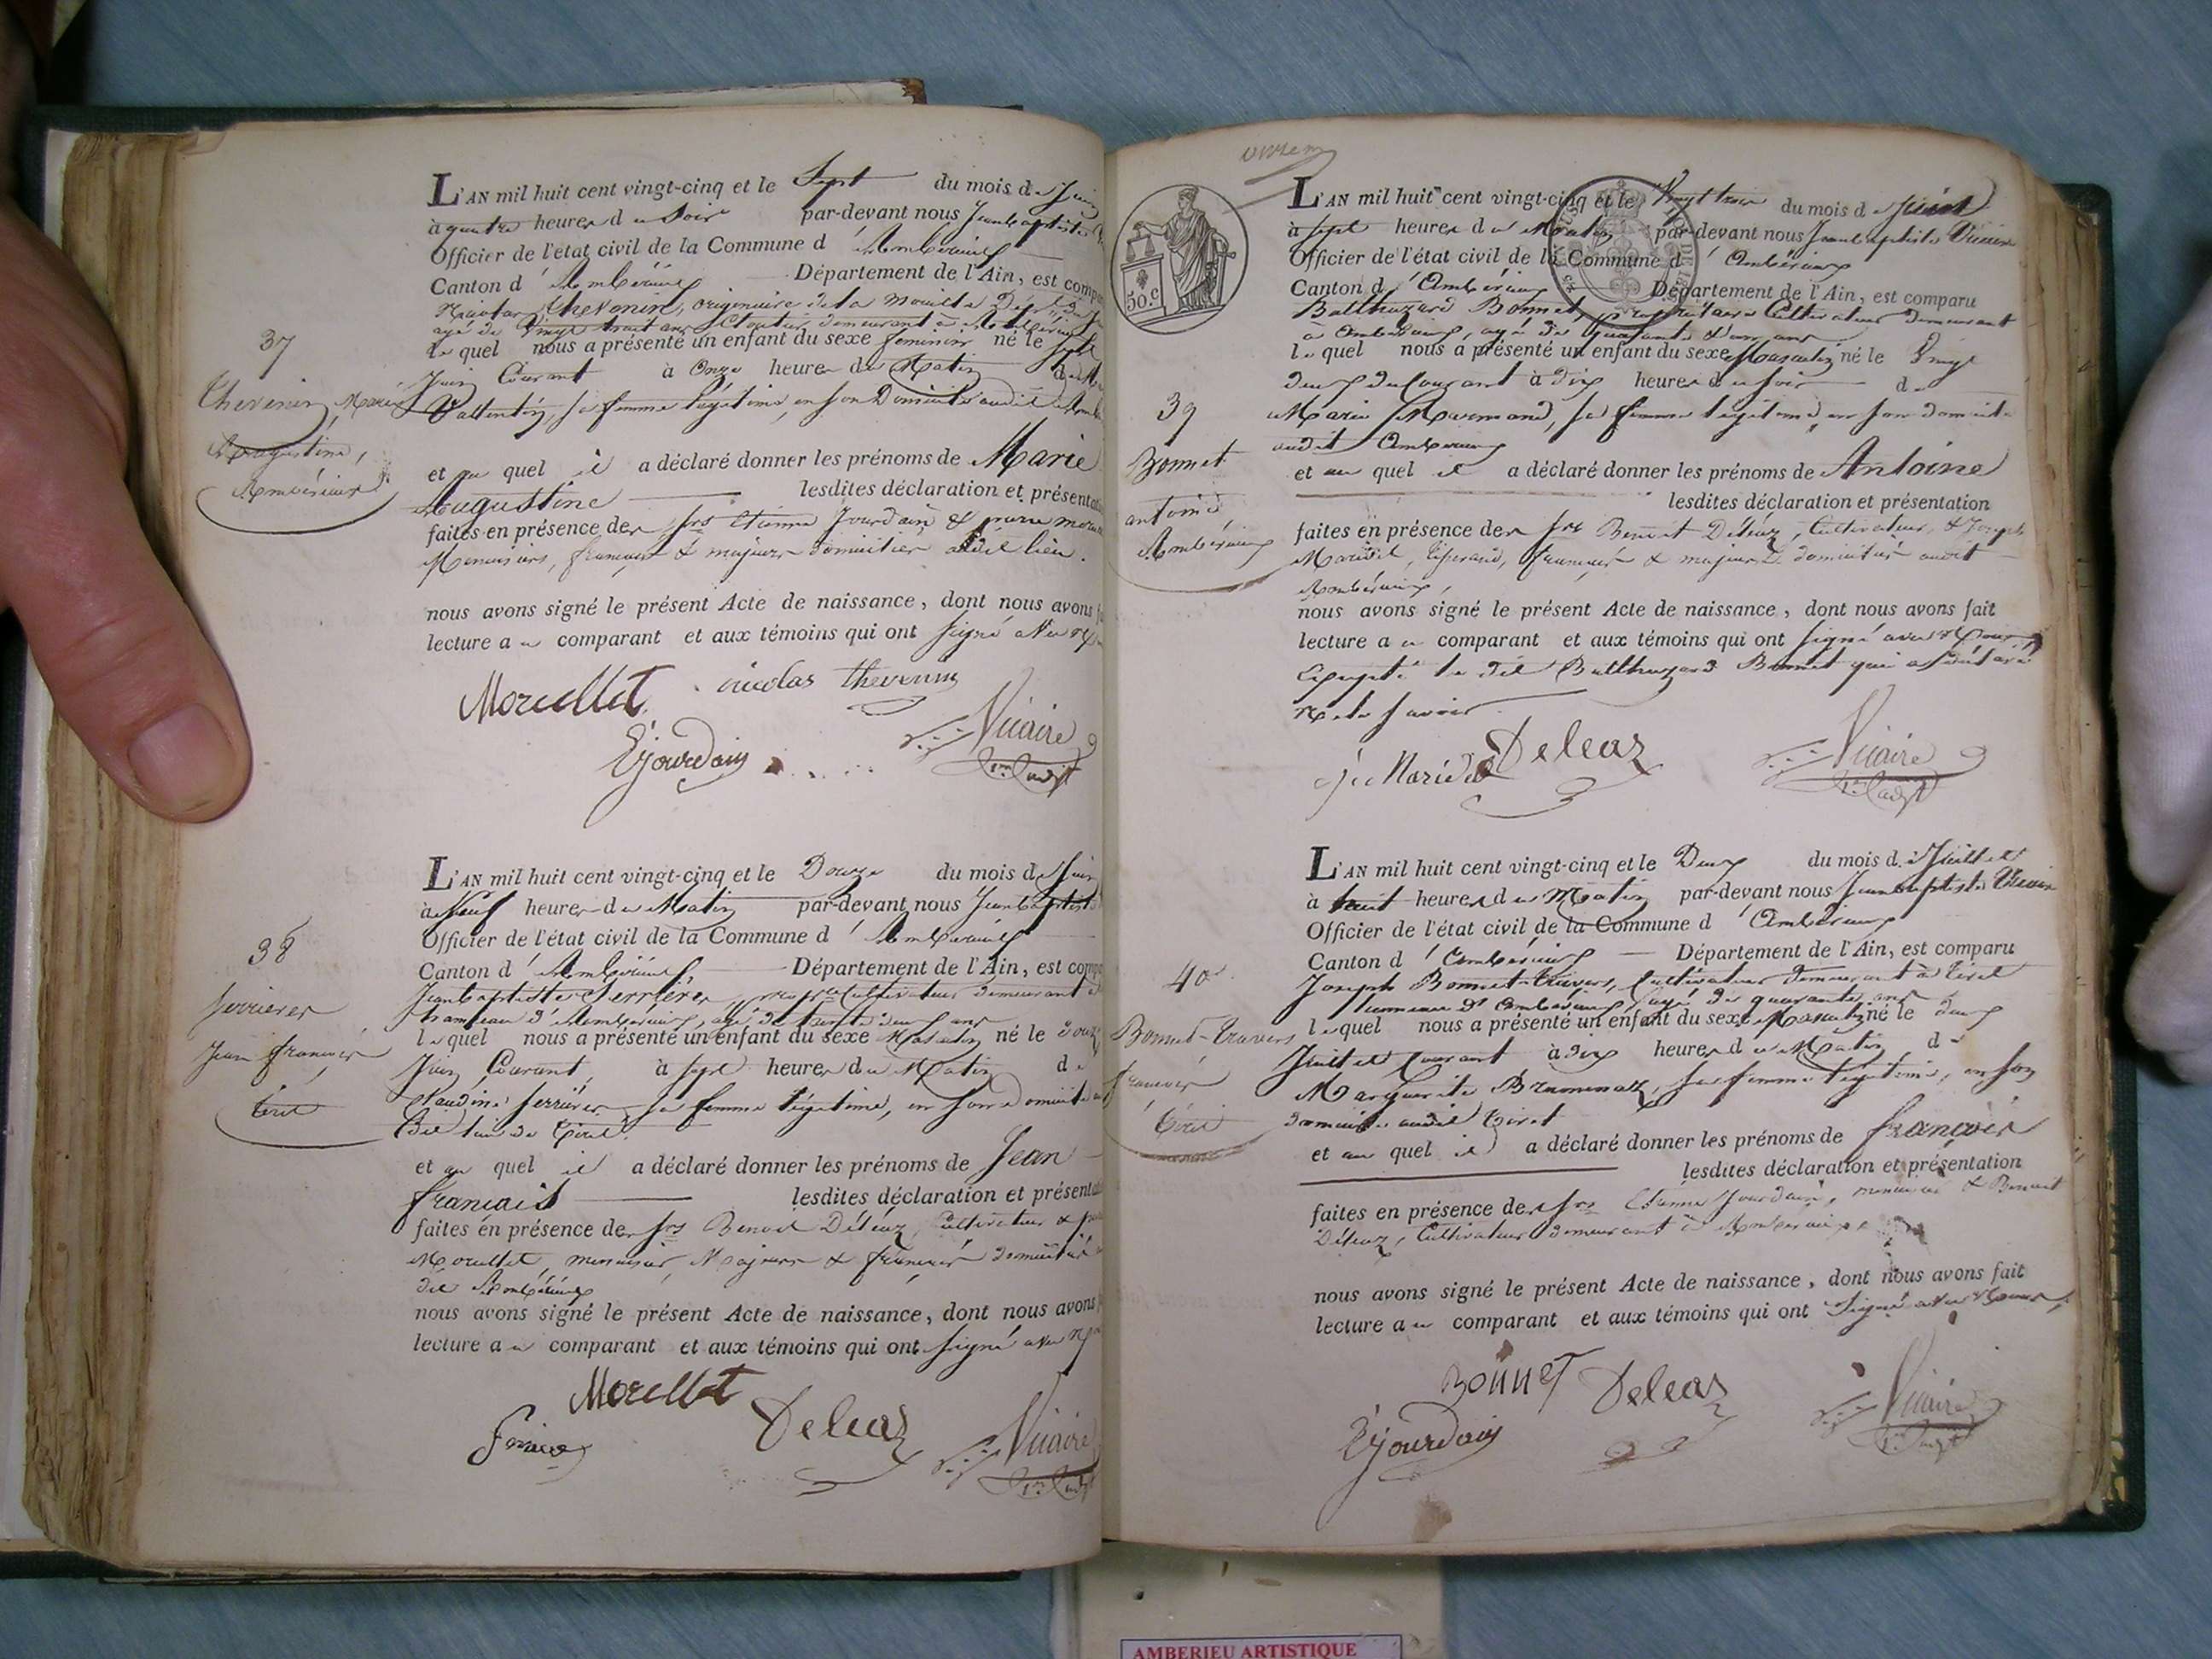 37
Thevenin, Marie
Augustine,
Ambérieux
L'AN mil huit cent vingt-cinq et le Sept du mois de Juin
à quatre heures du Soir par-devant nous Jean baptiste
Officier de l'état civil de la Commune d'Ambérieux
Canton d'Ambérieux Département de l'Ain, est comp
Nicolas Thevenin, originaire de la
agé de Vingt huit ans, demeurant à Ambérieux
lequel nous a présenté un enfant du sexe feminin né le Sept
Juin Courant à Onze heures du Matin de
Vallentin, sa femme légitime, en son Domicile audit
et au quel il a déclaré donner les prénoms de Marie
Augustine lesdites déclaration et présentat
faites en présence des Srs Etienne Jourdain & pierre
Menuisiers, français & majeurs domiciliés audit lieu.
nous avons signé le présent Acte de naissance, dont nous avons
lecture au comparant et aux témoins qui ont signé avec
Morellet nicolas thevenin
Ejourdain Vicaire
38
ferrieres
Jean françois
tiret
L'AN mil huit cent vingt-cinq et le Douze du mois de Juin
à Neuf heures du Matin par-devant nous Jean baptiste
Officier de l'état civil de la Commune d'Ambérieux
Canton d'Ambérieux Département de l'Ain, est comp
Jean baptiste ferrières, cultivateur demeurant
hameau d'Ambérieux, agé de trente deux ans
lequel nous a présenté un enfant du sexe Masculin né le douze
Juin Courant, à sept heures du Matin de
Claudine ferrières, sa femme légitime, en son domicile
dit lieu de tiret.
et au quel il a déclaré donner les prénoms de Jean
français lesdites déclaration et présentat
faites en présence des Srs Benoit Déléaz, Cultivateur &
Morellet, menuisier, Majeurs & français domiciliés
dit Ambérieux
nous avons signé le présent Acte de naissance, dont nous avons
lecture au comparant et aux témoins qui ont signé avec
Morellet
Deleaz Vicaire
39
Bonnet
antoine
Ambérieux
50.c
L'AN mil huit cent vingt-cinq et le Vingt trois du mois de Juin
à sept heures du Matin par-devant nous Jean baptiste Vicaire
Officier de l'état civil de la Commune d'Ambérieux
Canton d'Ambérieux Département de l'Ain, est comparu
Balthazard Bonnet, propriétaire Cultivateur demeurant
à Ambérieux, agé de quarante deux ans
lequel nous a présenté un enfant du sexe Masculin né le Vingt
deux du Courant à dix heures du soir de
Marie Marmand, sa femme légitime, en son domicile
audit Ambérieux
et au quel il a déclaré donner les prénoms de Antoine
lesdites déclaration et présentation
faites en présence des Srs Benoit Déléaz, Cultivateur, & Joseph
français & majeurs domiciliés audit
Ambérieux,
nous avons signé le présent Acte de naissance, dont nous avons fait
lecture au comparant et aux témoins qui ont signé avec nous,
Excepté le dit Balthazard Bonnet qui a déclaré
ne le savoir
Deleaz Vicaire
40
Bonnet-travers
françois
tiret
L'AN mil huit cent vingt-cinq et le Deux du mois de Juillet
à huit heures du Matin par-devant nous Jean baptiste Vicaire
Officier de l'état civil de la Commune d'Ambérieux
Canton d'Ambérieux Département de l'Ain, est comparu
Joseph Bonnet-travers, Cultivateur demeurant à tiret
commune d'Ambérieux, agé de quarante ans
lequel nous a présenté un enfant du sexe Masculin né le deux
Juillet Courant à dix heures du Matin de
Marguerite Brumenaz, sa femme légitime, en son
domicile audit tiret
et au quel il a déclaré donner les prénoms de françois
lesdites déclaration et présentation
faites en présence des Srs Etienne Jourdain, menuisier & Benoit
Déléaz, Cultivateur demeurant à Ambérieux,
nous avons signé le présent Acte de naissance, dont nous avons fait
lecture au comparant et aux témoins qui ont signé avec nous,
Bonnet Deleaz Vicaire
Ejourdain
AMBERIEU ARTISTIQUE